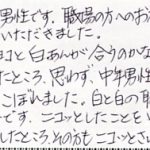 男性です。職場の方へのお
いただきました。
コと白あんが合うのかな
たところ、思わず、中年男性
こぼれました。白と白の
です。ニコッとしたことを
したところ、その方もニコッとさ